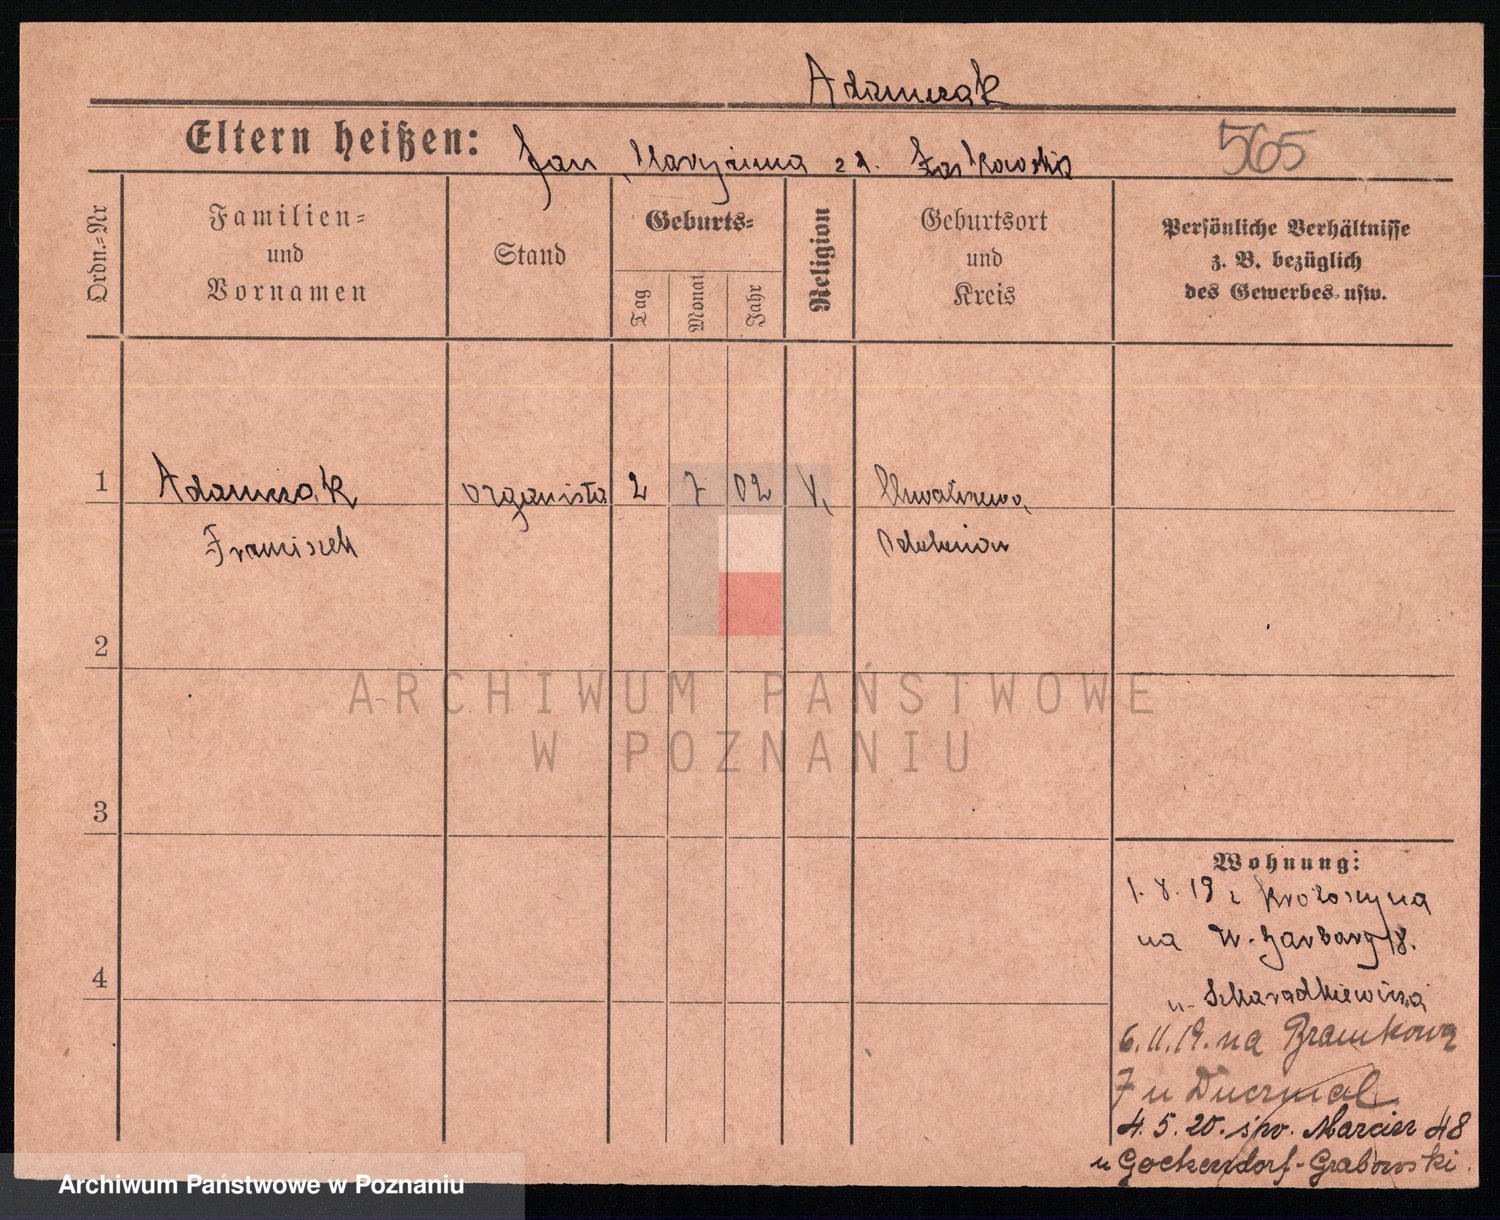 Adamczak
Eltern heißen: Jan, Maryanna z d. Laskowska 565
Ordn.=Nr
Familien=
und
Vornamen
Stand
Geburts=
Tag
Monat
Jahr
Religion
Geburtsort
und
Kreis
Persönliche Verhältnisse
z. B. bezüglich
des Gewerbes usw.
1 Adamczak organista 2 7 02 Chwaliszewo,
Franciszek Odolanów
2
3
4
Wohnung:
1. 8. 19 z Krotoszyna
na W. Garbary 18.
u. Szkaradkiewicza
6. 11. 19. na Bramkową
7 u Duczmal
4. 5. 20. św. Marcin 48
u Gockendorf-Grabowski.
ARCHIWUM PAŃSTWOWE
W POZNANIU
Archiwum Państwowe w Poznaniu